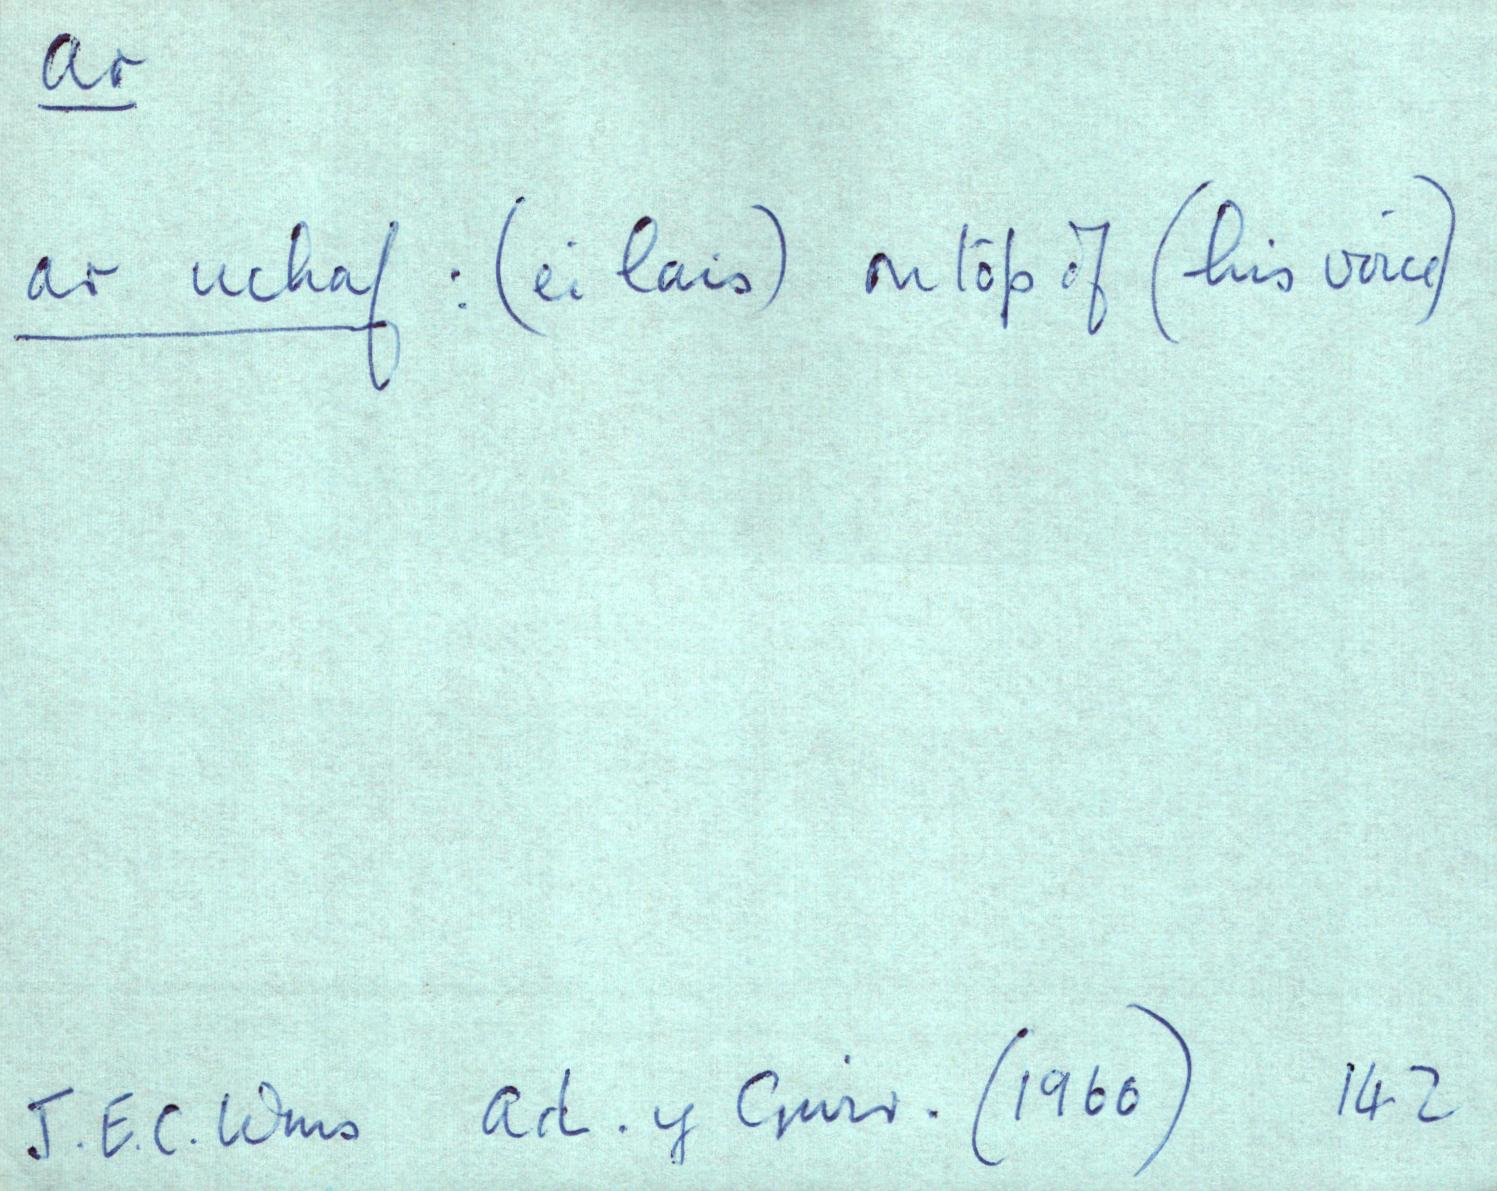 ar
ar uchaf : (ei lais) on top of (his voice)
J.E.C. Wms Ad. y Gwir. (1966) 142